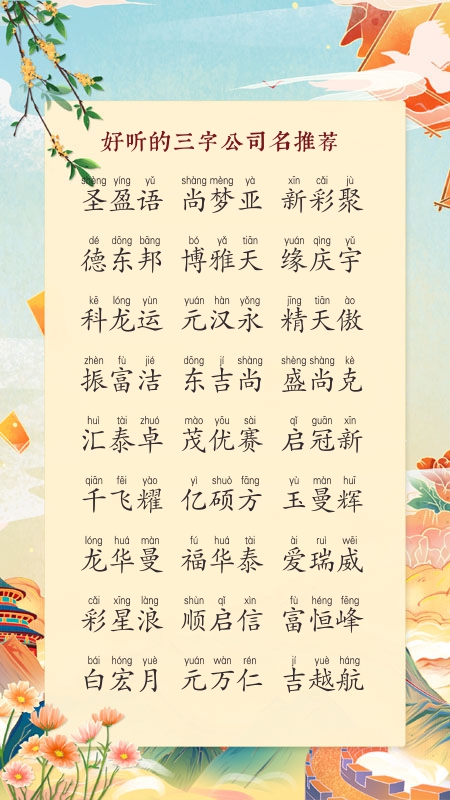 好听的三字公司名推荐
shèng yíng yǔ shàng mèng yà xīn cǎi jù
圣盈语 尚梦亚 新彩聚
dé dōng bāng bó yǎ tiān yuán qìng yǔ
德东邦 博雅天 缘庆宇
kē lóng yùn yuán hàn yǒng jīng tiān ào
科龙运 元汉永 精天傲
zhèn fù jié dōng jí shàng shèng shàng kè
振富洁 东吉尚 盛尚克
huì tài zhuó mào yōu sài qǐ guān xīn
汇泰卓 茂优赛 启冠新
qiān fēi yào yì shuò fāng yù màn huī
千飞耀 亿硕方 玉曼辉
lóng huá màn fú huá tài ài ruì wēi
龙华曼 福华泰 爱瑞威
cǎi xīng làng shùn qǐ xìn fù héng fēng
彩星浪 顺启信 富恒峰
bái hóng yuè yuán wàn rén jí yuè háng
白宏月 元万仁 吉越航